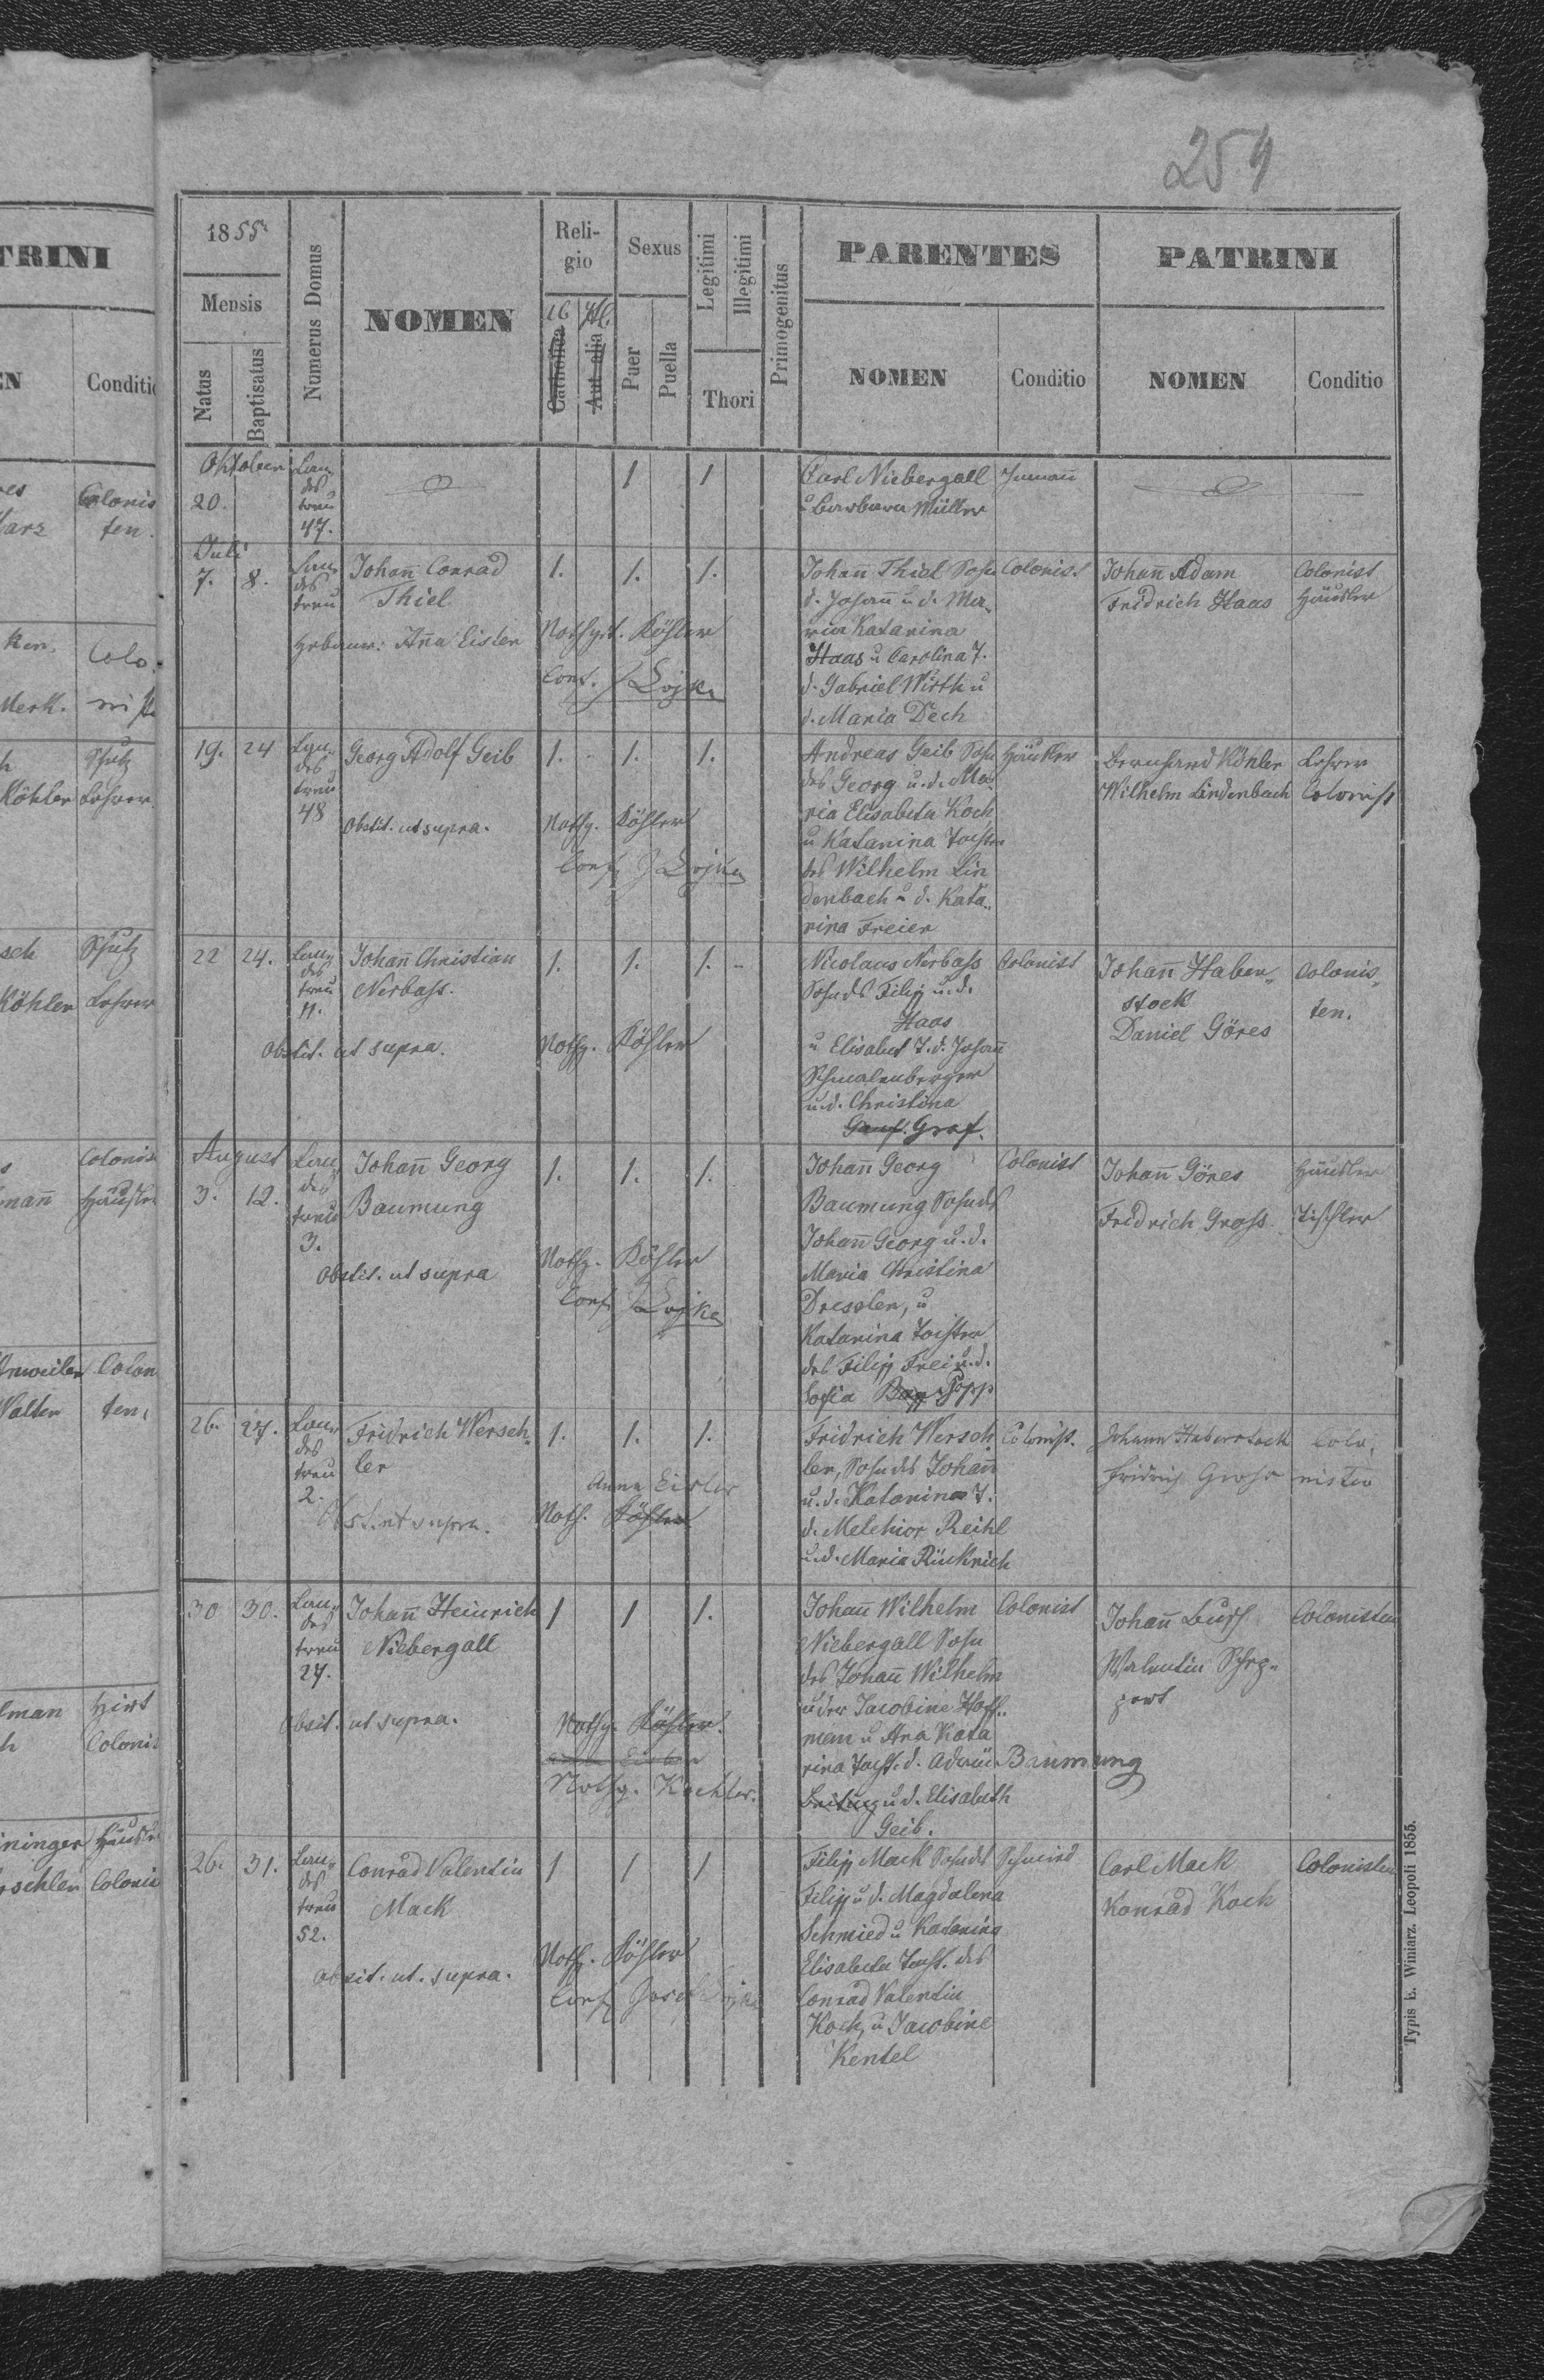 TRINI
Conditio
Colonis
ten.
Colo
Merk.
Köhler Lehrer
Köhler Lehrer
Colonis
mann
Colon
Walter ten.
Hirt
Coloni
ininger
rschler Coloni
254
1855
Mensis
Natus
Baptisatus
Numerus Domus
NOMEN
Reli-
gio
Catholica
Aut alia
Sexus
Puer
Puella
Legitimi
Illegitimi
Thori
Primogenitus
PARENTES
NOMEN
Conditio
PATRINI
NOMEN
Conditio
Oktober
20.
Lan
des
treu
47.
1
1
Carl Niebergall
u Barbara Müller
Juli
7. 8.
Lan
des
treu
Johañ Conrad
Thiel
Hebame: Aña Eisler
1. 1. 1.
Nothgt. Köhler
Conf. J Lojka
Johañ Thiel Sohn
d. Johañ u. d. Ma
ria Katarina
Haas u Carolina T.
d. Gabriel Wirth u
d. Maria Dech
Colonist
Johañ Adam
Fridrich Haas
Colonist
Häusler
19. 24
Lan
des
treu
48
Georg Adolf Geib
Obstit. ut supra.
1. 1. 1.
Nothg. Köhler
Conf J Lojka
Andreas Geib Sohn
des Georg u. d. Ma
ria Elisabeta Koch
u Katarina Tochter
des Wilhelm Lin
denbach u d. Kata
rina Freier
Häusler
Bernhard Köhler
Wilhelm Lindenbach
Lehrer
Colonist
22 24.
Lan
des
treu
11.
Johañ Christian
Nerbass.
Obstit. ut supra.
1. 1. 1.
Nothg. Köhler
Nicolaus Nerbass
Sohn des Filip u. d.
Haas
u Elisabet T. d. Johañ
Schmalenberger
u. d. Christina
Graf.
Colonist
Johañ Haber
stock
Daniel Göres
Colonis
ten.
August
3. 12.
Lan
des
treu
3.
Johañ Georg
Baumung
Obstit. ut supra
1. 1. 1.
Nothg. Köhler
Conf J Lojka
Johañ Georg
Baumung Sohn des
Johañ Georg u. d.
Maria Christina
Dressler, u
Katarina Tochter
des Filip Frei u. d.
Sofia Popp
Colonist
Johañ Göres
Fridrich Gross
Häusler
Tischler
26. 27.
Lan
des
treu
2.
Fridrich Wersch
ler
Obst. ut supra.
1. 1. 1.
Anna Eisler
Noth. Köhler
Fridrich Wersch
ler, Sohn des Johañ
u. d. Katarina T.
d. Melchior Reihl
u. d. Maria Rückrich
Colonist.
Johann Haberstock
Fridrich Gross
Colo
nisten
30 30.
Lan
des
treu
27.
Johañ Heinrich
Niebergall
Obsit. ut supra.
1 1 1.
Nothg. Köhler.
Nothg. Kochler.
Johañ Wilhelm
Niebergall Sohn
des Johañ Wilhelm
u der Jacobine Hoff
man u Ana Kata
rina Tocht. d. Adam Baumung
u d. Elisabeth
Geib.
Colonist
Johañ
Walentin
Colonisten
26. 31.
Lan
des
treu
52.
Conrad Valentin
Mack
obsit. ut. supra.
1 1 1
Nothg. Köhler
Conf Josef Lojka
Filip Mack Sohn des
Filip u d. Magdalena
Schmied u Katarina
Elisabeta Tocht. des
Conrad Valentin
Koch, u Jacobine
Kentel
Schmied
Carl Mack
Konrad Koch
Colonisten
Typis E. Winiarz. Leopoli 1855.